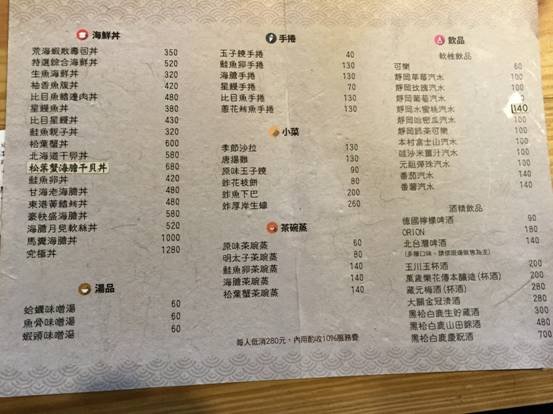 海鮮丼
荒海蝦散壽司丼 350
特選綜合海鮮丼 520
生魚海鮮丼 320
柚香魚腹丼 420
比目魚鰭邊肉丼 480
星鰻魚丼 380
比目魚丼 430
鮭魚親子丼 320
松葉蟹丼 600
北海道干貝丼 580
松葉蟹海膽干貝丼 680
鮭魚卵丼 420
甘海老海膽丼 480
東港黃鰭鮪丼 480
豪快盛海膽丼 580
海膽月見軟絲丼 520
馬糞海膽丼 1000
究極丼 1280
湯品
蛤蠣味噌湯 60
魚骨味噌湯 60
蝦頭味噌湯 60
手捲
玉子燒手捲 40
鮭魚卵手捲 130
海膽手捲 130
星鰻手捲 70
比目魚手捲 130
蔥花鮪魚手捲 130
小菜
季節沙拉 130
唐揚雞 130
原味玉子燒 90
炸花枝餅 80
炸魚下巴 200
炸厚岸生蠔 260
茶碗蒸
原味茶碗蒸 60
明太子茶碗蒸 80
鮭魚卵茶碗蒸 140
海膽茶碗蒸 140
松葉蟹茶碗蒸 140
每人低消280元，內用酌收10%服務費
飲品
軟性飲品
可樂 60
靜岡草莓汽水 100
靜岡玫瑰汽水 100
靜岡葡萄汽水
靜岡水蜜桃汽水 140
靜岡哈密瓜汽水 100
靜岡綠茶可樂 100
本村富士山汽水 100
碰沙米薑汁汽水 100
元祖彈珠汽水 100
番茄汽水 140
番薯汽水 140
酒精飲品
德國檸檬啤酒 90
ORION 180
北台灣啤酒 140
玉川玉杯酒 200
萬歲樂花傳本釀造(杯酒) 200
藏元梅酒(杯酒) 280
大關金冠清酒 280
黑松白鹿生貯藏酒 300
黑松白鹿山田錦酒 480
黑松白鹿慶祝酒 700